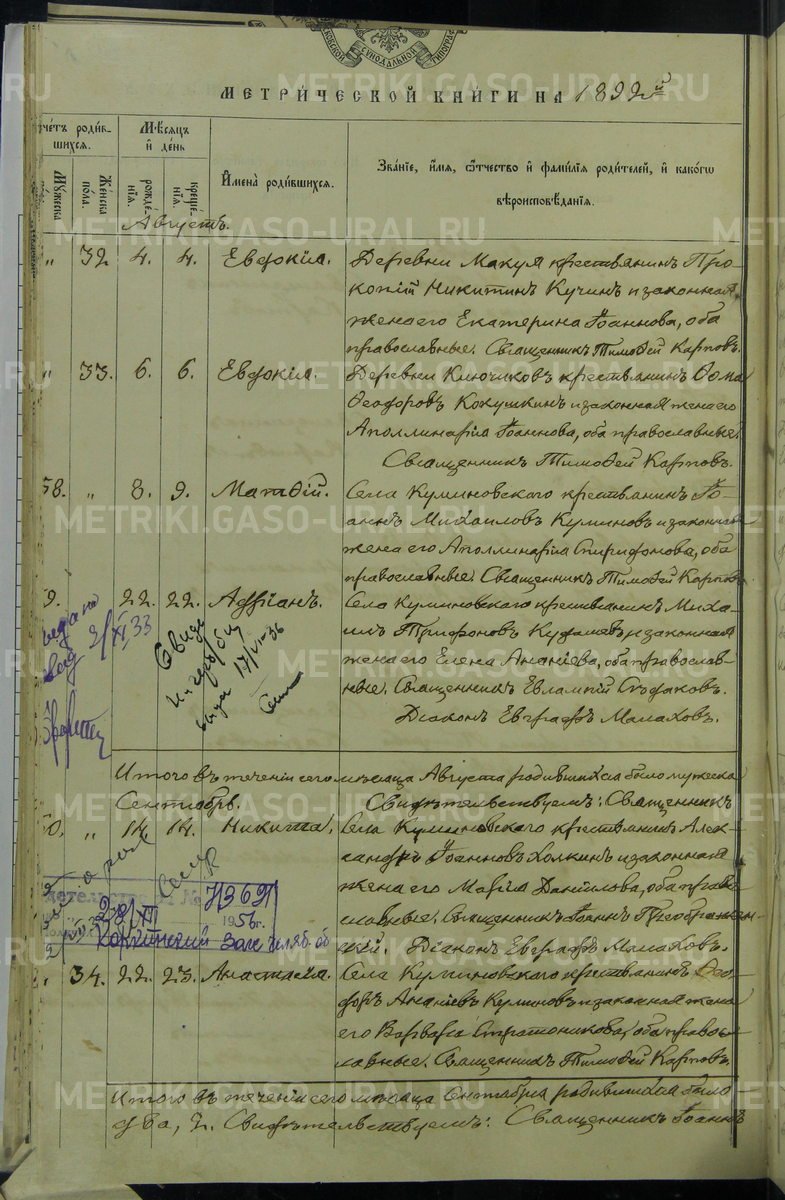 МЕТРИЧЕСКОЙ КНИГИ НА 1899й
METRIKI.GASO-URAL.RU
Счетъ родившихся.
Мѣсяцъ и день
Имена родившихся.
Званіе, имя, отчество и фамилія родителей, и какогѡ вѣроисповѣданія.
Мужеска пола.
Женска пола.
рожденія.
крещенія.
Августъ.
„ 32 4. 4. Евдокія. Деревни Макуя крестьянинъ Про-
копій Никитинъ Кучинъ и законная
жена его Екатерина Іоаннова, оба
православные. Священникъ Тимоѳей Карповъ.
„ 33. 6. 6. Евдокія. Деревни Ключиковъ крестьянинъ Ѳома
Ѳеодоровъ Кокушкинъ и законная жена его
Аполлинарія Іоаннова, оба православные.
Священникъ Тимоѳей Карповъ.
58. „ 8. 9. Матѳій. Села Куминовскаго крестьянинъ Іо-
аннъ Михаиловъ Куминовъ и законная
жена его Аполлинарія Спиридонова, оба
православные. Священникъ Тимоѳей Карповъ
9. 22. 22. Адріанъ. Села Куминовскаго крестьянинъ Миха-
илъ Трифоновъ и законная
жена его Елена Ананіева, оба православ-
ные. Священникъ Евлампій
Діаконъ Евграфъ Малаховъ.
XI 33
17/VI-36
Итого въ теченіи сего мѣсяца Августа родившихся было мужеска
Сентябрь. Свидѣтельствуемъ: Священникъ
0. „ 14. 14. Никита. Села Куминовскаго крестьянинъ Алек-
сандръ Іоанновъ Холкинъ и законная
жена его Марія Данілова, оба право-
славные. Священникъ Іоаннъ Преображен-
скій. Діаконъ Евграфъ Малаховъ.
1956 г.
34. 22. 23. Анастасія. Села Куминовскаго крестьянинъ Ѳео-
доръ Ананіевъ Куминовъ и законная жена
его Варвара Стратоникова, оба право-
славные. Священникъ Тимоѳей Карповъ.
Итого въ теченіи сего мѣсяца Сентября родившихся было
два, 2. Свидѣтельствуемъ: Священникъ Іоаннъ